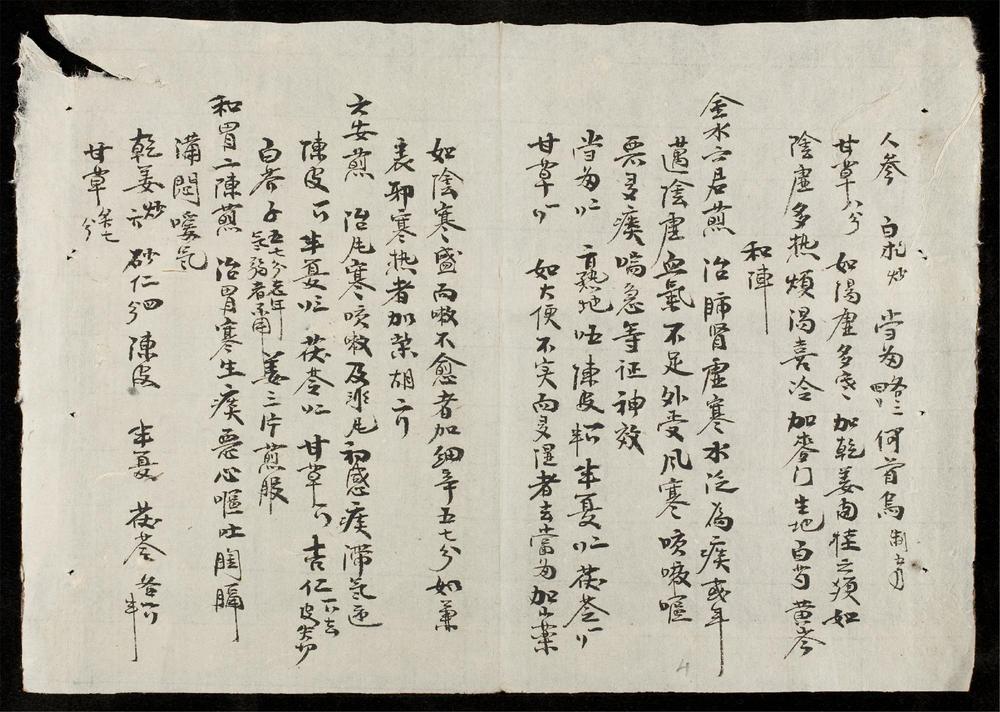 人參 白朮炒 當歸略三 何首烏制五
甘草八分 如陽虛多寒加乾姜肉桂之須如
陰虛多热煩渴喜冷加麥门生地白芍黄芩
和陣
金水六君煎 治肺腎虛寒水泛為痰或年
邁陰虛血氣不足外受风寒咳嗽嘔
惡多痰喘急等症神效
當歸 熟地 陳皮 半夏 茯苓
甘草 如大便不实而多湿者去當歸加山藥
如陰寒盛而嗽不愈者加細辛五七分如兼
表邪寒热者加柴胡
六安煎 治风寒咳嗽及非风初感痰滞氣逆
陳皮 半夏 茯苓 甘草 杏仁 去皮尖切
白芥子五七分老年氣弱者不用 姜三片煎服
和胃二陳煎 治胃寒生痰惡心嘔吐胸膈
滿悶噯氣
乾姜炒 砂仁四分 陳皮 半夏 茯苓
甘草炙七分
4